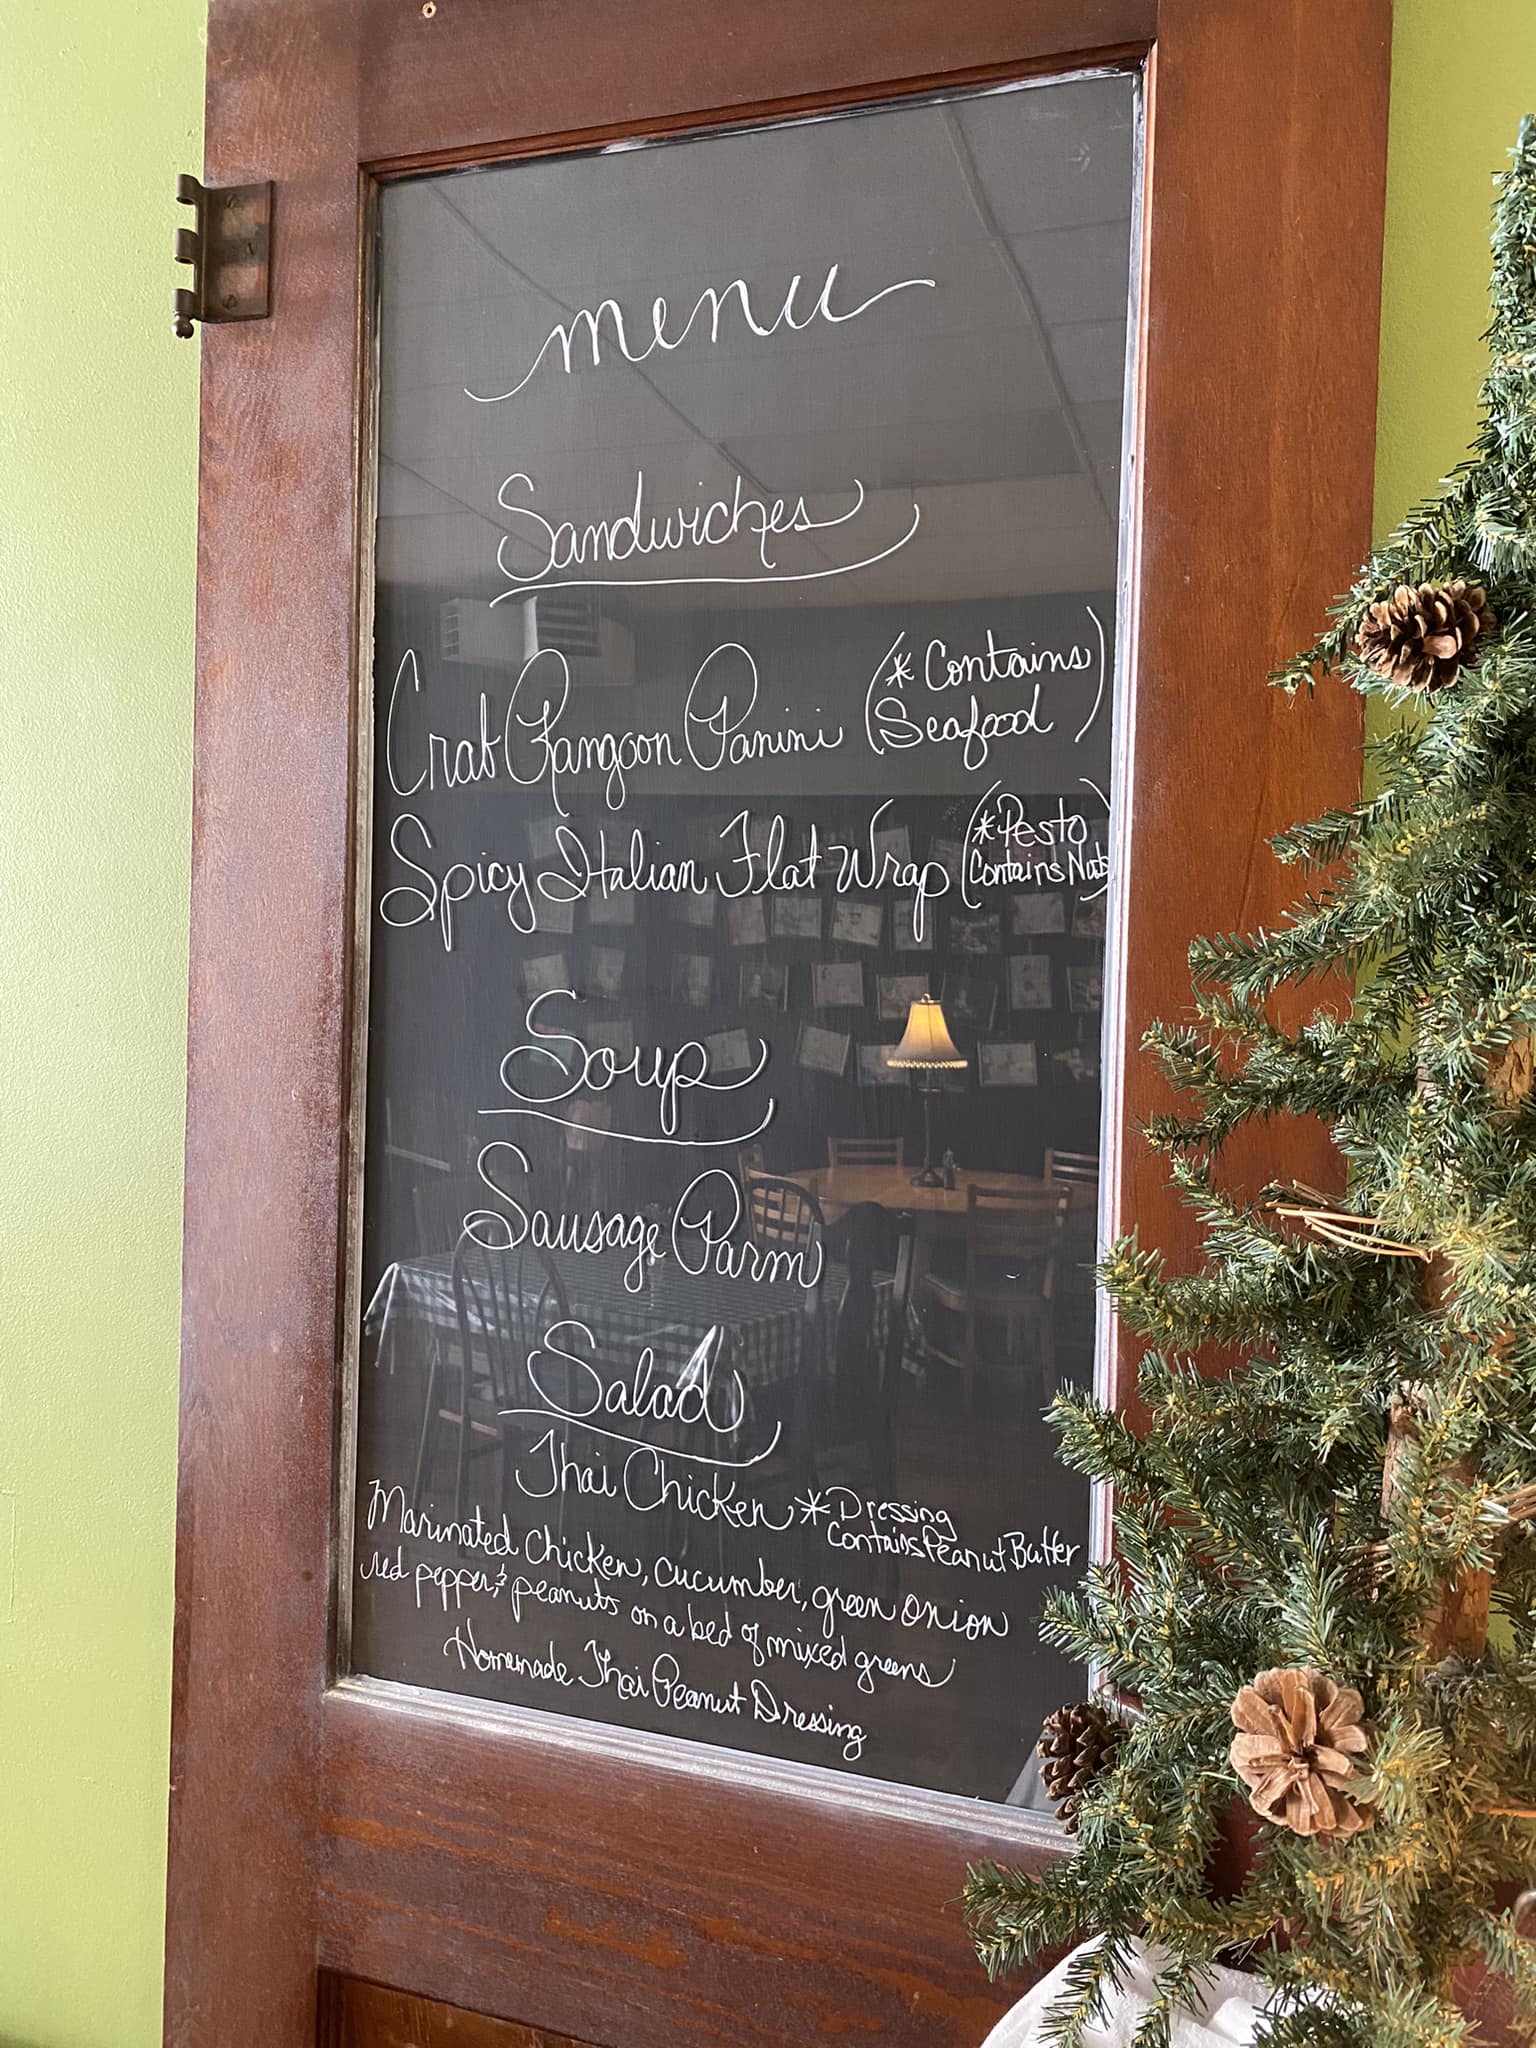 menu
Sandwiches
Crab Rangoon Panini (* Contains
Seafood)
Spicy Italian Flat Wrap (*Pesto
Contains Nuts)
Soup
Sausage Parm
Salad
Thai Chicken *Dressing
Contains Peanut Butter
Marinated Chicken, cucumber, green onion
red pepper, & peanuts on a bed of mixed greens
Homemade Thai Peanut Dressing